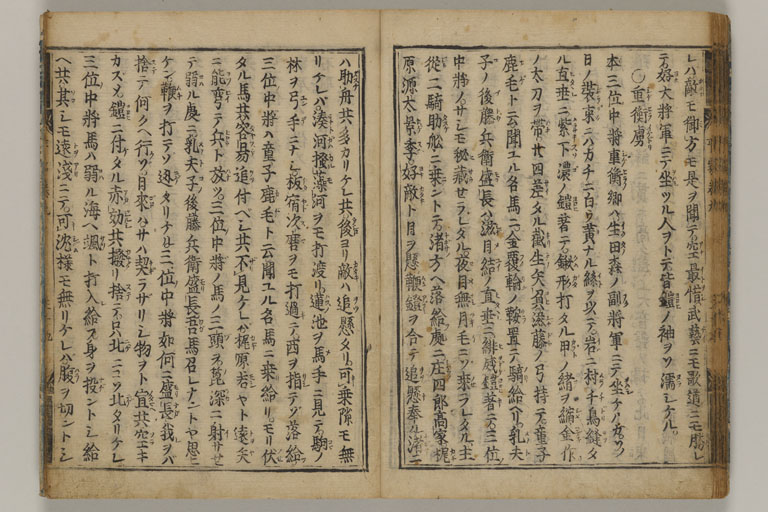 レハ敵モ御方モ是ヲ聞テ云最惜武藝ニモ歌道ニモ勝レ
テ好大將軍ニテ坐ツル人ヲトテ皆鎧ノ袖ヲソ濡シケル
○重衡虜
本三位中將重衡卿ハ生田森ノ副將軍ニテ坐ケルカソノ
日ノ装束ニハカチニ白ウ黄ナル絲ヲ以テ岩ニ村千鳥縫タ
ル直垂ニ紫下濃ノ鎧著テ鍬形打タル甲ノ緒ヲ縮金作
ノ太刀ヲ帶廿四差タル截生矢負滋藤ノ弓持テ童子
鹿毛ト云聞ユル名馬ニ金覆輪ノ鞍置テ騎給ヘリ乳夫
子ノ後藤兵衛盛長ハ滋目結ノ直垂ニ緋威鎧著テ三位
中將ノサシモ秘藏セラレタル夜目無月毛ニソ乘ラレタル主
從二騎助舩ニ乗ントテ渚方ヘ落給處ニ庄四郎高家梶
原源太景季好敵ト目ヲ懸鞭鐙ヲ合テ追懸奉ル渚ニ
ハ助舟共多カリケレ共後ヨリ敵ハ追懸タリ可乗隙モ無
リケレバ湊河摺藻河ヲモ打渡リ蓮池ヲ馬手ニ見テ駒ノ
林ヲ弓手ニナシ板宿次磨ヲモ打過テ西ヲ指テゾ落給
三位中將ハ童子鹿毛ト云聞ユル名馬ニ乗給リモリ伏
タル馬共容易追付ベシ共不見ケレハ梶原若ヤト遠矢
ニ能彎テ兵ト放ツ三位中將ノ馬ノ三頭ヲ箆深ニ射サセ
テ弱ル處ニ乳夫子後藤兵衛盛長吾馬召レナントヤ思
ケン鞭ヲ打テソ迯タリケル三位中將如何ニ盛長我ヲバ
捨テ何クヘ行ソ日來ハサハ契ラサリシ物ヲト宣共空キ
カズメ鎧ニ付タル赤効共撥リ捨テ只北ニコソ北タリケレ
三位中將馬ハ弱ル海ヘ颯ト打入給ヌ身ヲ投ントシ給
ヘ共其シモ遠淺ニテ可沈樣モ無リケレバ腹ヲ切ントシ